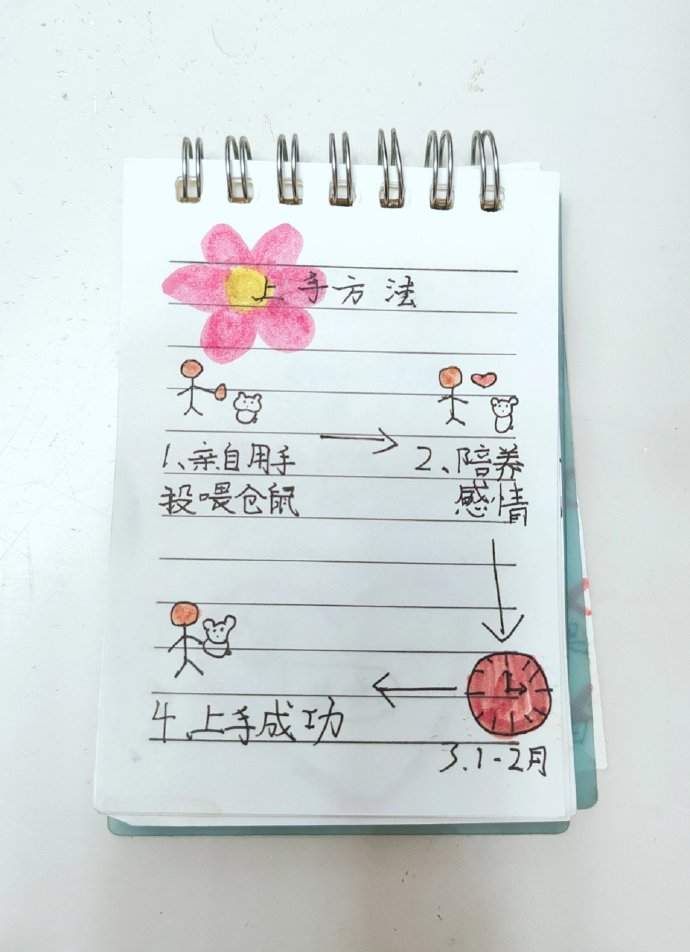 上手方法
1、亲自用手
投喂仓鼠
2、陪养
感情
3.1-2月
4.上手成功